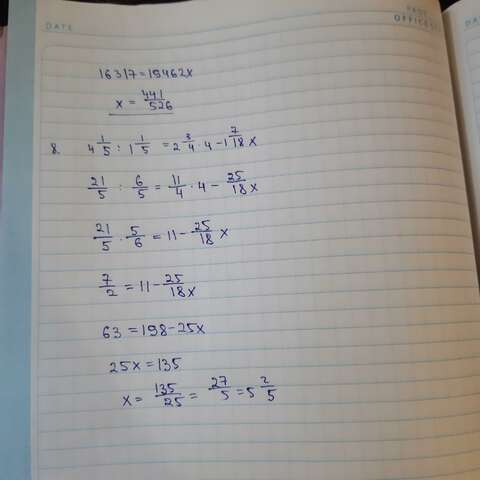 DATE
PAGE
OFFICE
DATE
16317=19462x
x = 441/526
8. 4 1/5 : 1 1/5 = 2 3/4 · 4 - 1 7/18 x
21/5 : 6/5 = 11/4 · 4 - 25/18 x
21/5 · 5/6 = 11 - 25/18 x
7/2 = 11 - 25/18 x
63 = 198 - 25x
25x = 135
x = 135/25 = 27/5 = 5 2/5